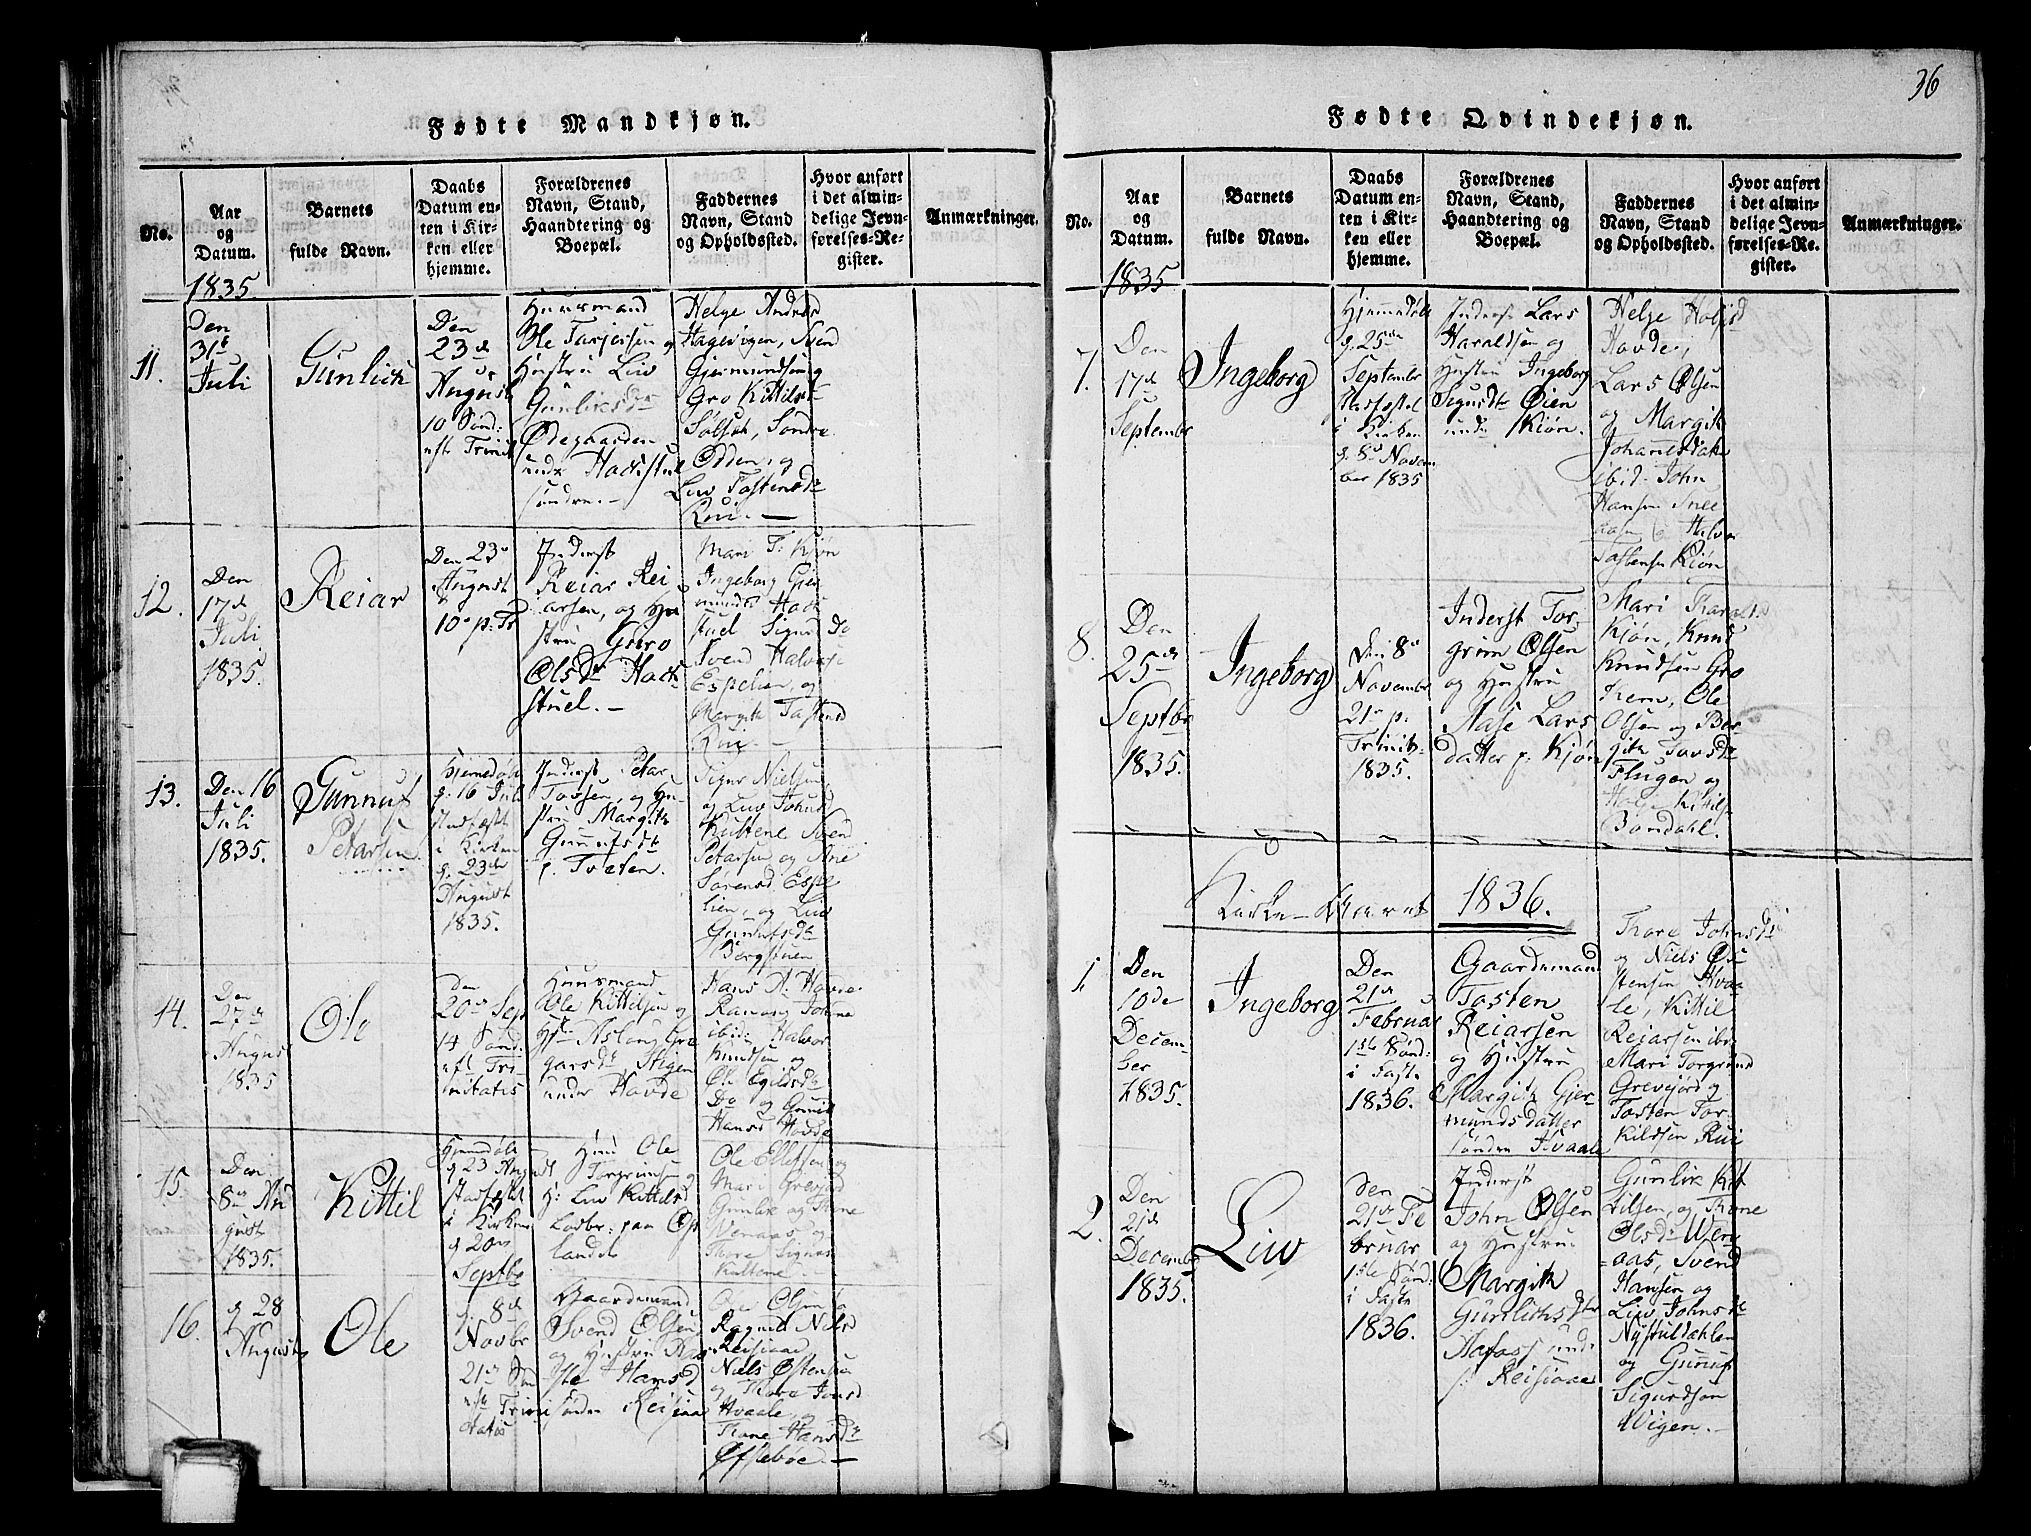 36
Fødte Mandkjøn.
No.
Aar
og
Datum.
Barnets
fulde Navn.
Daabs
Datum en-
ten i Kir-
ken eller
hjemme.
Forældrenes
Navn, Stand,
Haandtering og
Boepæl.
Faddernes
Navn, Stand
og Opholdssted.
Hvor anført
i det almin-
delige Jevn-
førelses-Re-
gister.
Anmærkninger.
1835.
11.
Den
31te
Juli
Gunlick
Den
23de
August
10 Sønd:
eft. Trinit
Huusmand
Ole Tarjersen og
Hustru Liw
Gunliksdtr
Ødegaarden
under Hadestuel
søndre.-
Helge Andres
Hagevigen, Svend
Gjermundsen og
Gro Kittilsdt
Sølset, Søndre
Odden, og
Liw Tostensdtr
Rui.-
12.
Den
17de
Juli
1835.
Reiar
Den 23de
August
10de p. Tr
Inderst
Reiar Rei
arsen, og Hu
stru Guro
Olsdtr Hade
stuel.-
Mari T. Kjøn
Ingeborg Gjer
munds Hade
stuel Sigur do
Svend Halvors
Espelien, og
Margith Tostensd
Rui.-
13.
Den 16
Juli
1835.
Gunnuf
Petarsen
Hjemedøbt
d. 16 Juli
stadfæstet
i Kirken
d. 23de
August
1835.
Inderst Petar
Tovsen, og Hu-
stru Margith
Gunnufsdtr
p. Tveten.
Sigur Nielsen
og Liw Johnsd
Kultene Svend
Petarsen og Ane
Sørensd. Espe
lien, og Liw
Gunufsdtr
Borgstuen
14.
Den
27de
August
1835
Ole
den
20de Sept
14 Sønd:
eft. Tri
nitatis
Huusmand
Ole Kittilsen og
Hst. Aslaug Gre
garsdtr Stigen
under Hovde
Hans A. Hovde
Ranaug Johne
ibid: Halvor
Knudsen og
Ole Egildsdtr
Do og Gunild
Hansd Hovde
15.
Den
8de Au
gust
1835.
Kittil
Hjemedøbt
d 23 August
stadfæstet
i Kirken
d 20de
Septbr
Huusd Ole
Torgrimsen og
H: Liw Kittilsd
Ladbr: paa Op
landet
Ole Ellefsen og
Mari Grevejord
Gunlik og Thone
Wenaas, og
Thore Sigurs
Kultene.
16.
d 28
August
Ole
d. 8de
Novbr
21de Søn
eft Trini
tatis
Gaardemand
Svend Olsen
og Hustru
Hansd
søndre Reisiaa
Olsen
Ragnild Nielsd
Reisiaae
Niels Østensen
og Thore Jonsd
Hvaale, og
Thone Hansdtr
Øfstebøe.-
Fødte Qvindekjøn.
No.
Aar
og
Datum.
Barnets
fulde Navn.
Daabs
Datum en-
ten i Kir-
ken eller
hjemme.
Forældrenes
Navn, Stand,
Haandtering og
Boepæl.
Faddernes
Navn, Stand
og Opholdssted.
Hvor anført
i det almin-
delige Jevn-
førelses-Re-
gister.
Anmærkninger.
1835
7.
Den
17de
Septembr
Ingeborg
Hjemmedøbt
d. 25de
September
Stadfæstet
i Kirken
d. 8de Novem
ber 1835
Inderst Lars
Haraldsen og
Hustru Ingeborg
Sigursdtr Øien
under Kiøn.
Helge Holjed
Hovde,
Lars Olsen
og Margit
Johannesdatr
ibid. John
Hansen Snee
aasen og Halvor
Tostensen Kiøn
8.
Den
25de
Septbr
1835.
Ingeborg
Den 8de
Novembr
21de p.
Trinit:
1835.
Inderst Tor-
grim Olsen
og Hustru
Aase Lars
datter p. Kjøn
Mari Tharalt
Kjøn, Knud
Knudsen Gro
trem, Ole
Olsen og Ber
git Tovsdtr
Flugen og
Helje Kittils
Bondahl.
Kirke-Aaret 1836.
1.
Den
10de
Decem-
ber
1835.
Ingeborg
Den
21de
Februar
1ste Sønd:
i Faste
1836.
Gaardemand
Tosten
Reiarsen
og Hustru
Margith Gjer
mundsdatter
søndre Hvaale
Thore Johnsdtr
og Niels Øs
tensen Hvaa-
le, Kittil
Reiarsen ibd
Mari Torgrimsd
Grevejord og
Tosten Tor-
kildsen Rui
2.
Den
21de
Decembr
1835.
Liw
den
21de Fe
bruar
1ste Sønd:
i Faste
1836.
Inderst
John Olsen
og Hustru
Margith
Gunlichsdtr
Aafoss und:
Reisiaae
Gunlik Kit
tilsen, og Thone
Olsdt Wen-
aas, Svend
Hansen og
Liw Johnsdtr
Nystuldahlen
og Gunnuf
Sigurdsøn
Wigen.-